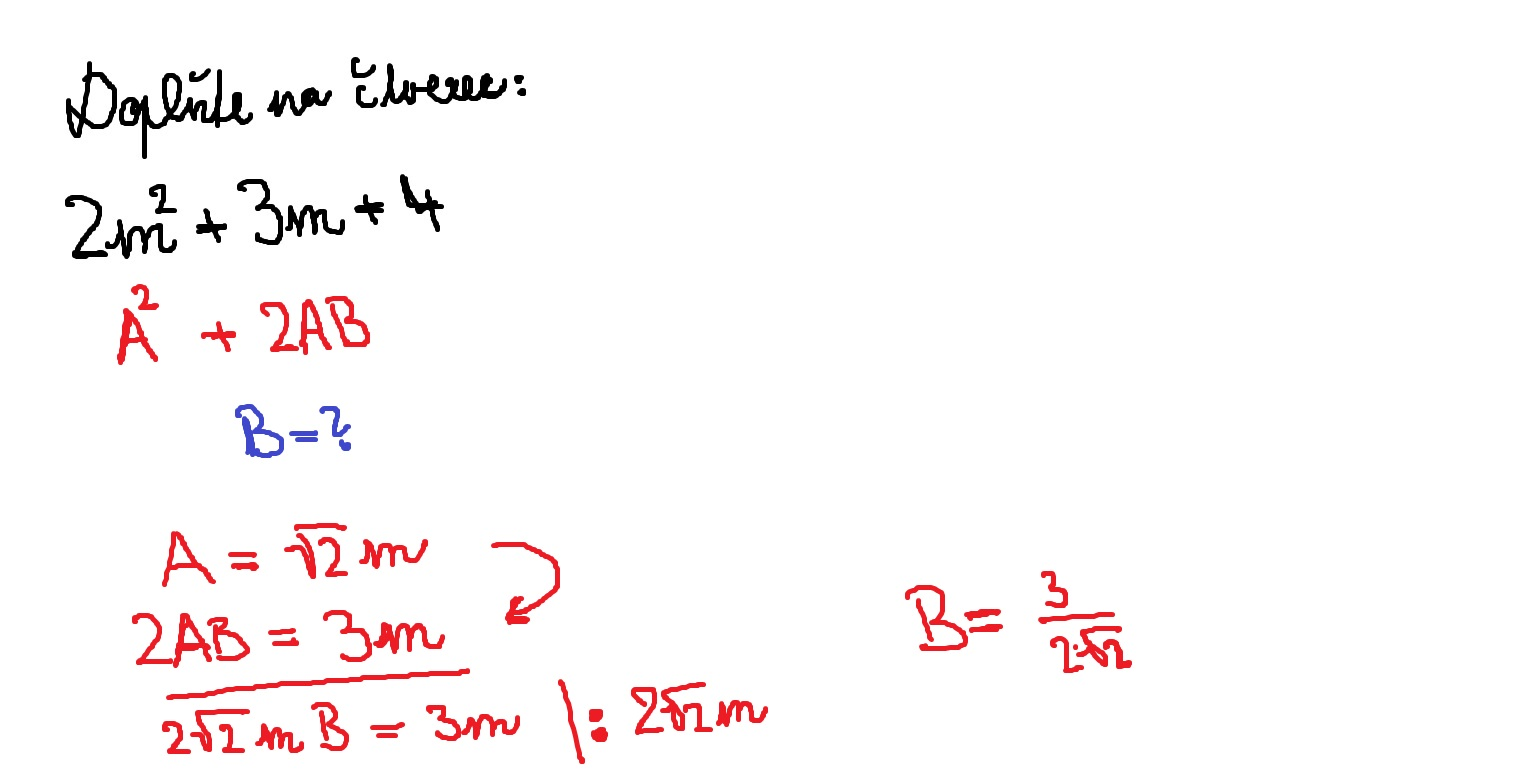 Doplňte na čtverec:
2m² + 3m + 4
A² + 2AB
B = ?
A = √2 m
2AB = 3m
2√2 m B = 3m |: 2√2 m
B = 3/(2·√2)